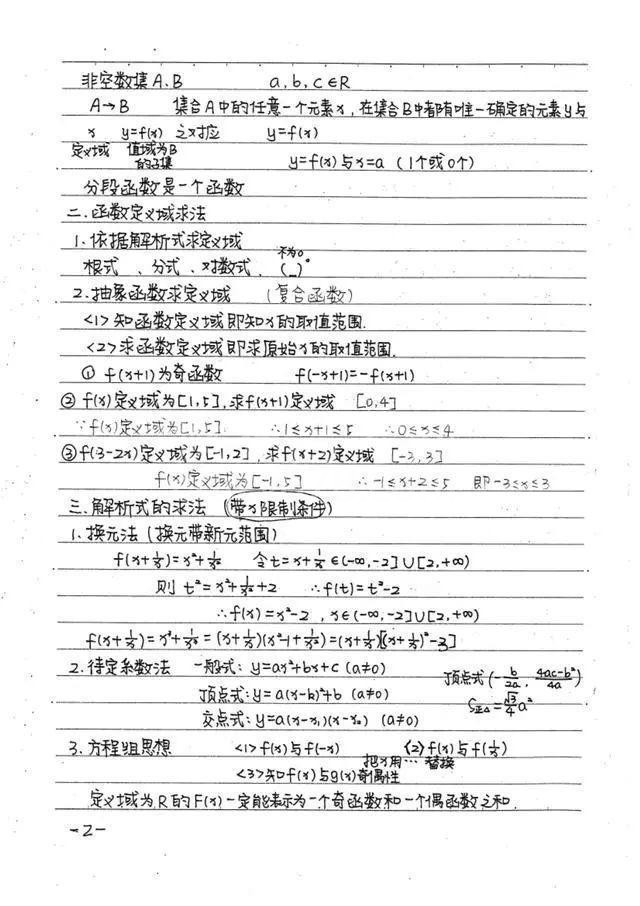 非空数集A、B a,b,c∈R
A→B 集合A中的任意一个元素x,在集合B中都有唯一确定的元素y与
x y=f(x) 之对应 y=f(x)
定义域 值域为B的子集 y=f(x)与x=a (1个或0个)
分段函数是一个函数
二.函数定义域求法
1.依据解析式求定义域
根式、分式、对数式、(_)° 不为0
2.抽象函数求定义域 (复合函数)
<1>知函数定义域即知x的取值范围.
<2>求函数定义域即求原始x的取值范围.
① f(x+1)为奇函数 f(-x+1)=-f(x+1)
② f(x)定义域为[1,5],求f(x+1)定义域 [0,4]
∵f(x)定义域为[1,5]; ∴1≤x+1≤5 ∴0≤x≤4
③f(3-2x)定义域为[-1,2],求f(x+2)定义域 [-3,3]
f(x)定义域为[-1,5] ∴-1≤x+2≤5 即-3≤x≤3
三.解析式的求法 (带x限制条件)
1.换元法(换元带新元范围)
f(x+1/x)=x²+1/x² 令t=x+1/x∈(-∞,-2]∪[2,+∞)
则 t²=x²+1/x²+2 ∴f(t)=t²-2
∴f(x)=x²-2, x∈(-∞,-2]∪[2,+∞)
f(x+1/x)=x³+1/x³=(x+1/x)(x²-1+1/x²)=(x+1/x)[(x+1/x)²-3]
2.待定系数法 一般式: y=ax²+bx+c (a≠0) 顶点式(-b/2a, 4ac-b²/4a)
顶点式: y=a(x-k)²+b (a≠0) S正△=√3/4a²
交点式: y=a(x-x₁)(x-x₂) (a≠0)
3.方程组思想 <1>f(x)与f(-x) <2>f(x)与f(1/x)
把x用…替换
<3>知f(x)与g(x)奇偶性
定义域为R的F(x)一定能表示为一个奇函数和一个偶函数之和.
-2-